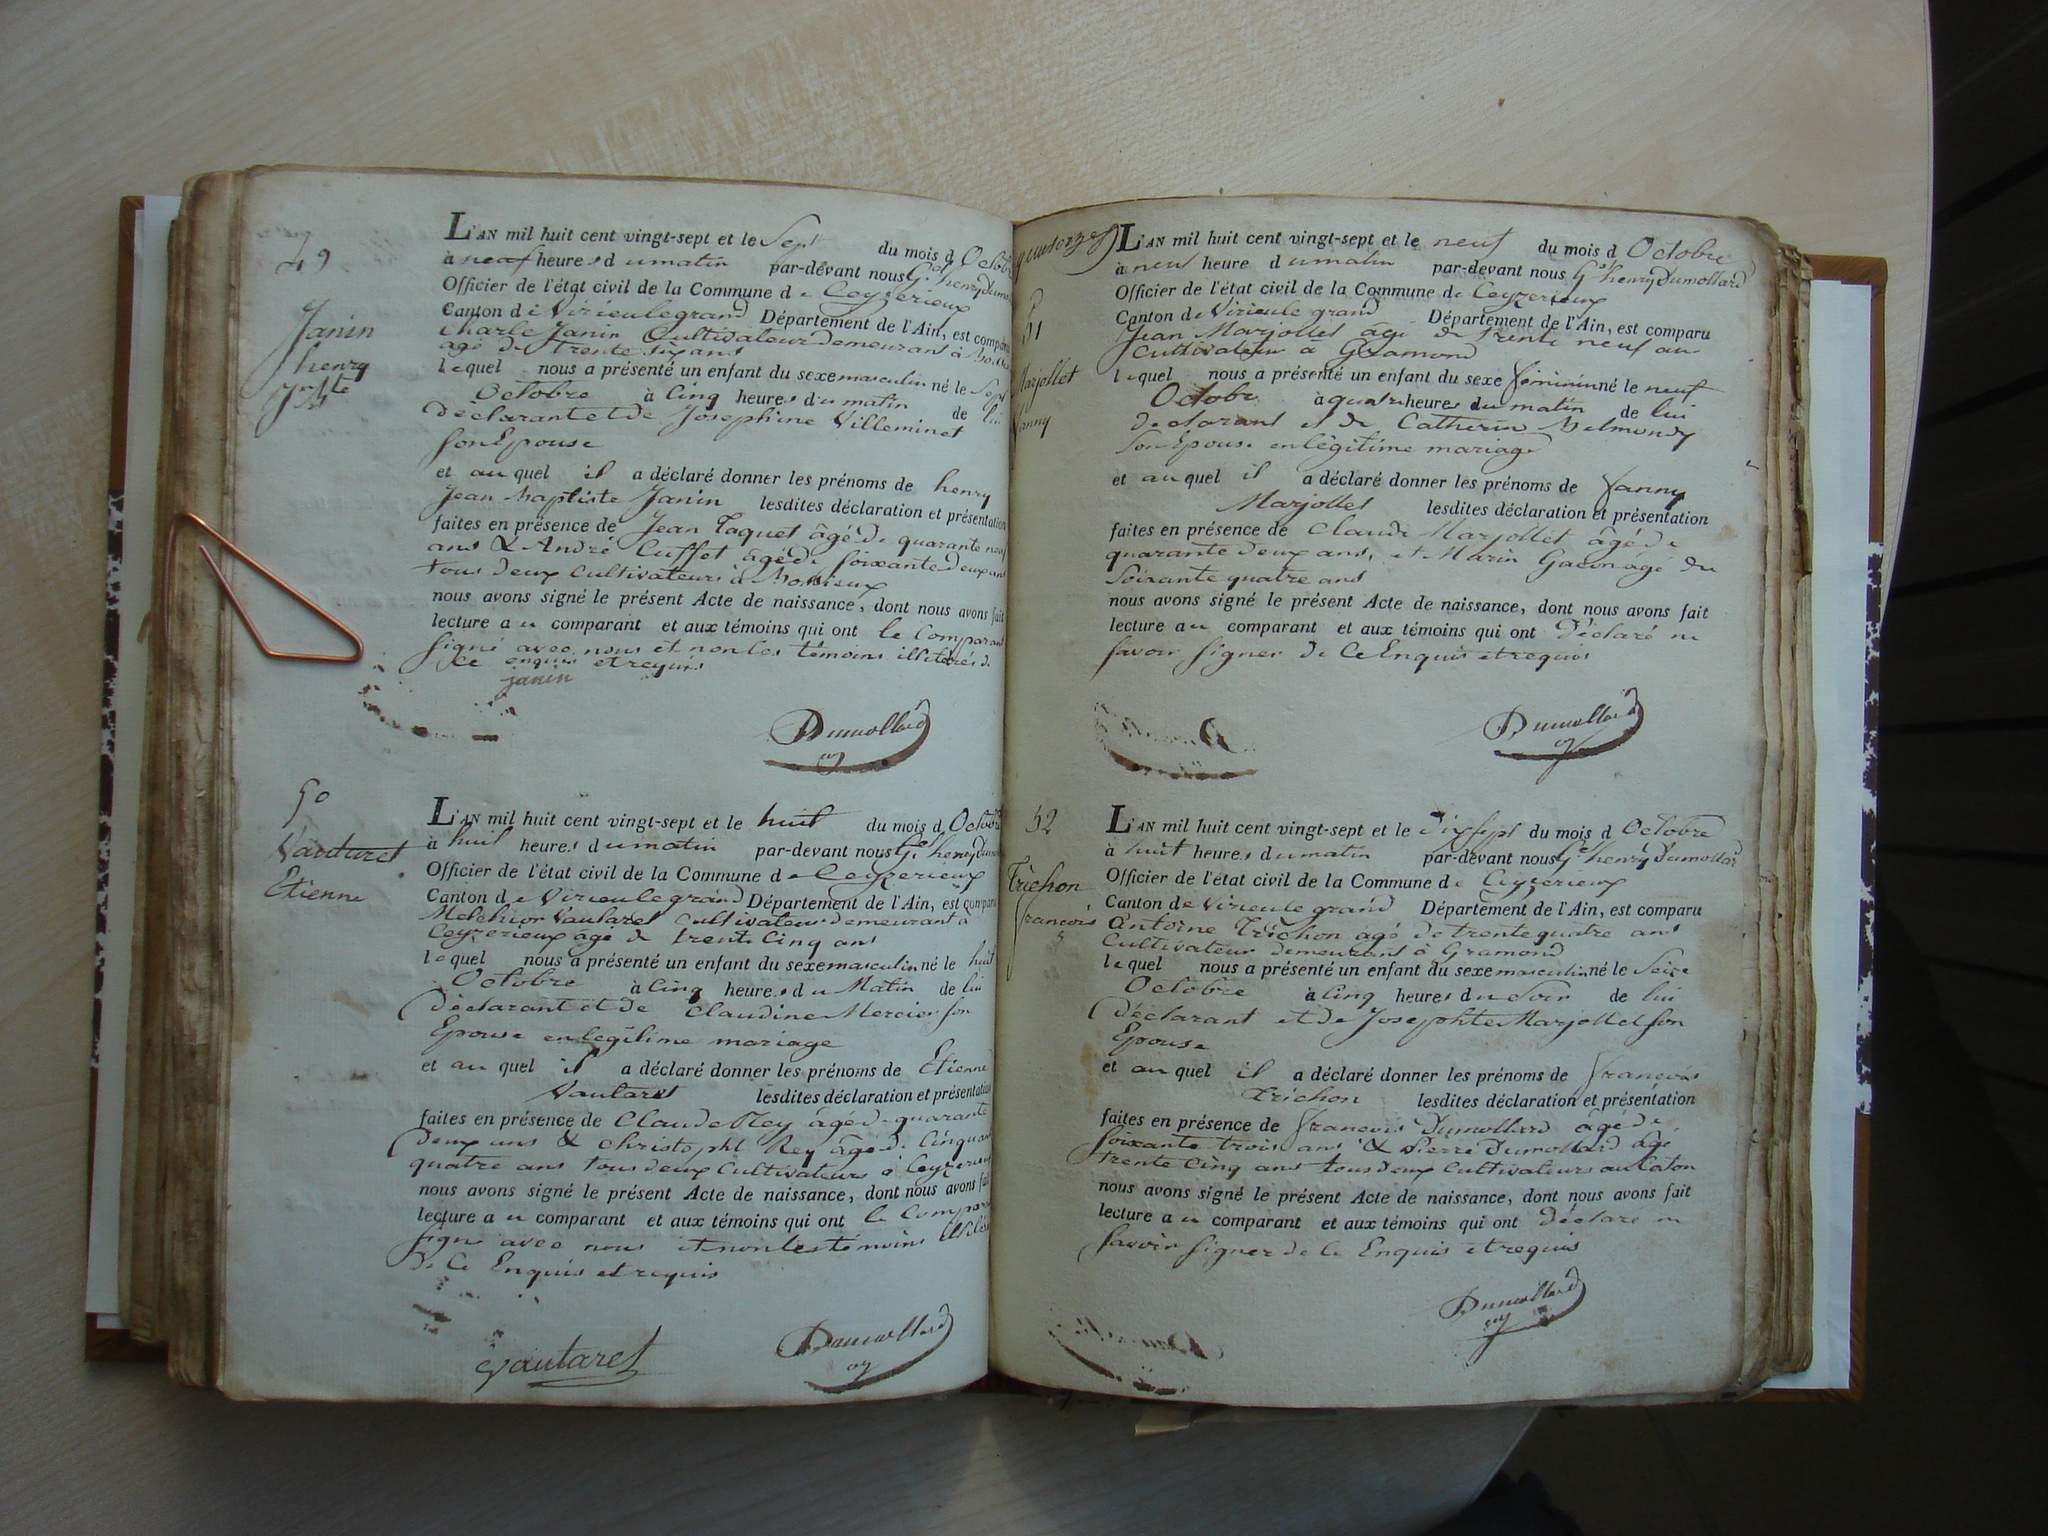 49
Janin
henry
Jn Bte
L'AN mil huit cent vingt-sept et le Sept du mois d Octobre
à neuf heures du matin par-devant nous Gd henry Dumo
Officier de l'état civil de la Commune de Ceyzerieux
Canton de Virieulegrand Département de l'Ain, est comparu
Charle Janin Cultivateur demeurant à
agé de trente six ans
lequel nous a présenté un enfant du sexe masculin né le Sept
Octobre à Cinq heures du matin de lui
déclarant et de Josephine Villeminet
Son Epouse
et au quel il a déclaré donner les prénoms de henry
Jean Baptiste Janin lesdites déclaration et présentation
faites en présence de Jean Taquet âgé de quarante neuf
ans & André Cuffet âgé de soixante deux ans
tous deux Cultivateurs à
nous avons signé le présent Acte de naissance, dont nous avons fait
lecture au comparant et aux témoins qui ont le Comparant
signé avec nous et non les témoins illiterés de
Ce enquis et requis
janin
Dumollard
50
Vauturet
Etienne
L'AN mil huit cent vingt-sept et le huit du mois d Octobre
à huit heures du matin par-devant nous Gd henry Dumo
Officier de l'état civil de la Commune de Ceyzerieux
Canton de Virieulegrand Département de l'Ain, est comparu
Melchior Vautaret Cultivateur demeurant à
Ceyzerieux âgé de trente Cinq ans
lequel nous a présenté un enfant du sexe masculin né le huit
Octobre à Cinq heures du Matin de lui
déclarant et de Claudine Mercier son
Epouse en légitime mariage
et au quel il a déclaré donner les prénoms de Etienne
Vautaret lesdites déclaration et présentation
faites en présence de Claude Rey âgé de quarante
deux ans & Christophe Rey âgé de Cinquante
quatre ans tous deux Cultivateurs à Ceyzerieux
nous avons signé le présent Acte de naissance, dont nous avons fait
lecture au comparant et aux témoins qui ont le Comparant
signé avec nous et non les témoins
De Ce Enquis et requis
Vautaret
Dumollard
51
Marjollet
fanny
L'AN mil huit cent vingt-sept et le neuf du mois d Octobre
à neuf heure du matin par-devant nous Gd henry Dumollard
Officier de l'état civil de la Commune de Ceyzerieux
Canton de Virieule grand Département de l'Ain, est comparu
Jean Marjollet âgé de trente neuf an
Cultivateur à Gramond
lequel nous a présenté un enfant du sexe féminin né le neuf
Octobre à quatre heures du matin de lui
déclarant et de Catherine Belmondy
Son Epouse en légitime mariage
et au quel il a déclaré donner les prénoms de fanny
Marjollet lesdites déclaration et présentation
faites en présence de Claude Marjollet âgé de
quarante deux ans, et Marin Gacon agé de
Soixante quatre ans
nous avons signé le présent Acte de naissance, dont nous avons fait
lecture au comparant et aux témoins qui ont Déclaré ne
savoir signer de Ce Enquis et requis
Dumollard
52
Trichon
francois
L'AN mil huit cent vingt-sept et le dix sept du mois d Octobre
à huit heures du matin par-devant nous Gd henry Dumollard
Officier de l'état civil de la Commune de Ceyzerieux
Canton de Virieule grand Département de l'Ain, est comparu
Antoine Trichon agé de trente quatre ans
Cultivateur demeurant à Gramond
lequel nous a présenté un enfant du sexe masculin né le Seize
Octobre à Cinq heures du Soir de lui
déclarant et de Josephte Marjollet son
Epouse
et au quel il a déclaré donner les prénoms de francois
Trichon lesdites déclaration et présentation
faites en présence de francois Dumollard âgé de
soixante trois ans & Pierre Dumollard âgé
trente Cinq ans tous deux Cultivateurs au Caton
nous avons signé le présent Acte de naissance, dont nous avons fait
lecture au comparant et aux témoins qui ont déclaré ne
savoir signer de Ce Enquis et requis
Dumollard